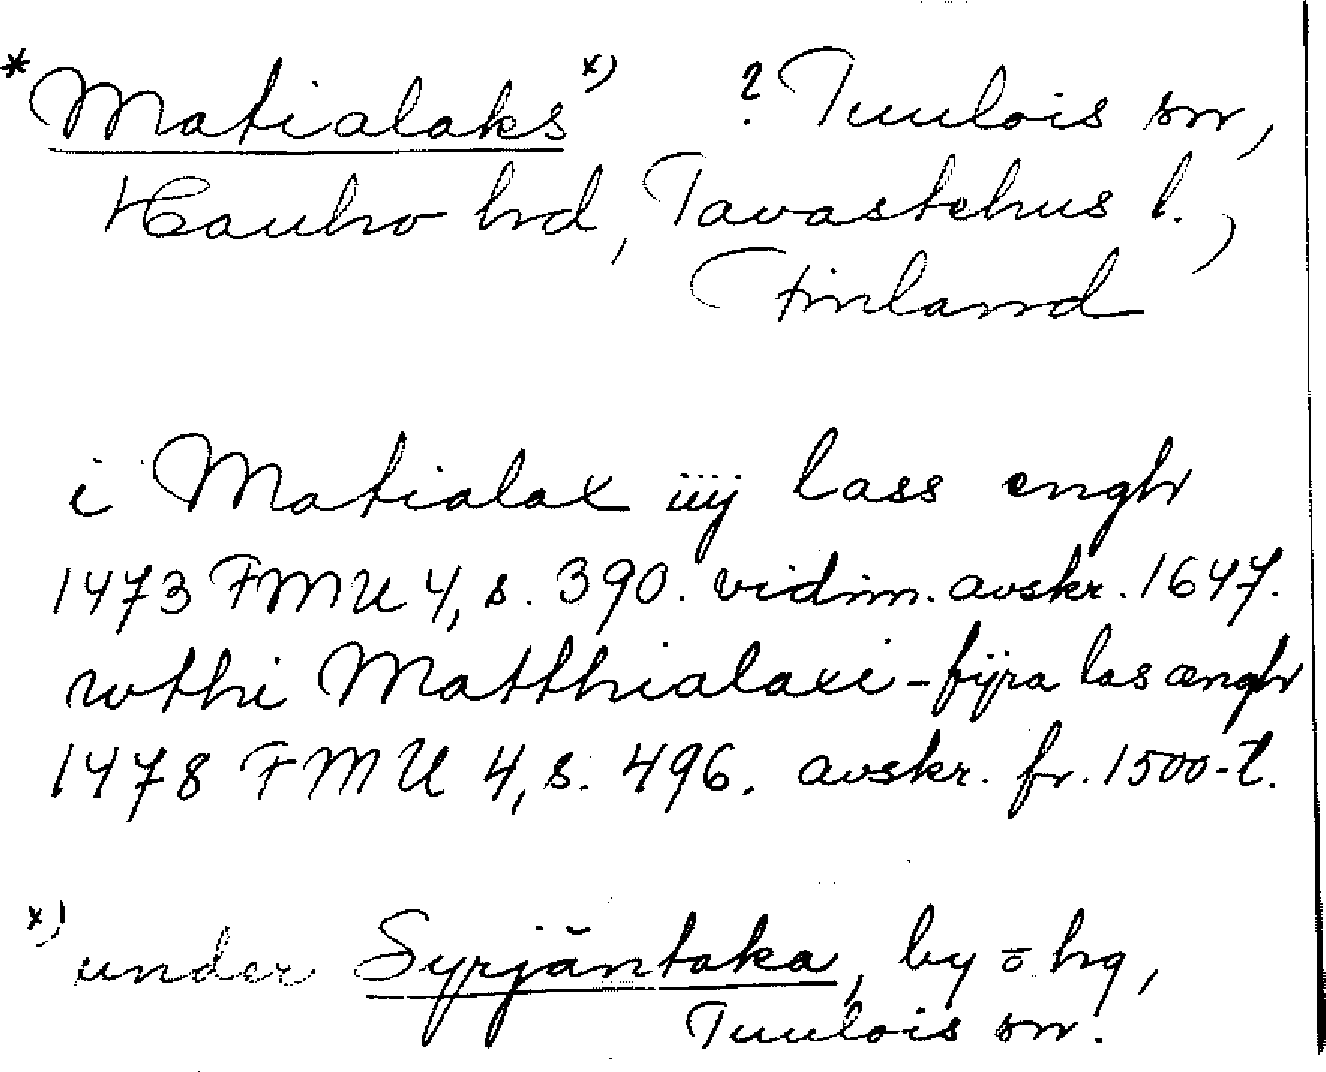 *Matialaks x) ? Tuulois sn,
Hauho hrd, Tavastehus l.,
Finland
i Matialax iiij lass engh
1473 FMU 4, s. 390. vidim. avskr. 1647.
wthi Matthialaxi - fijra las ængh
1478 FMU 4, s. 496. avskr. fr. 1500-t.
x) under Syrjäntaka, by o hg,
Tuulois sn.